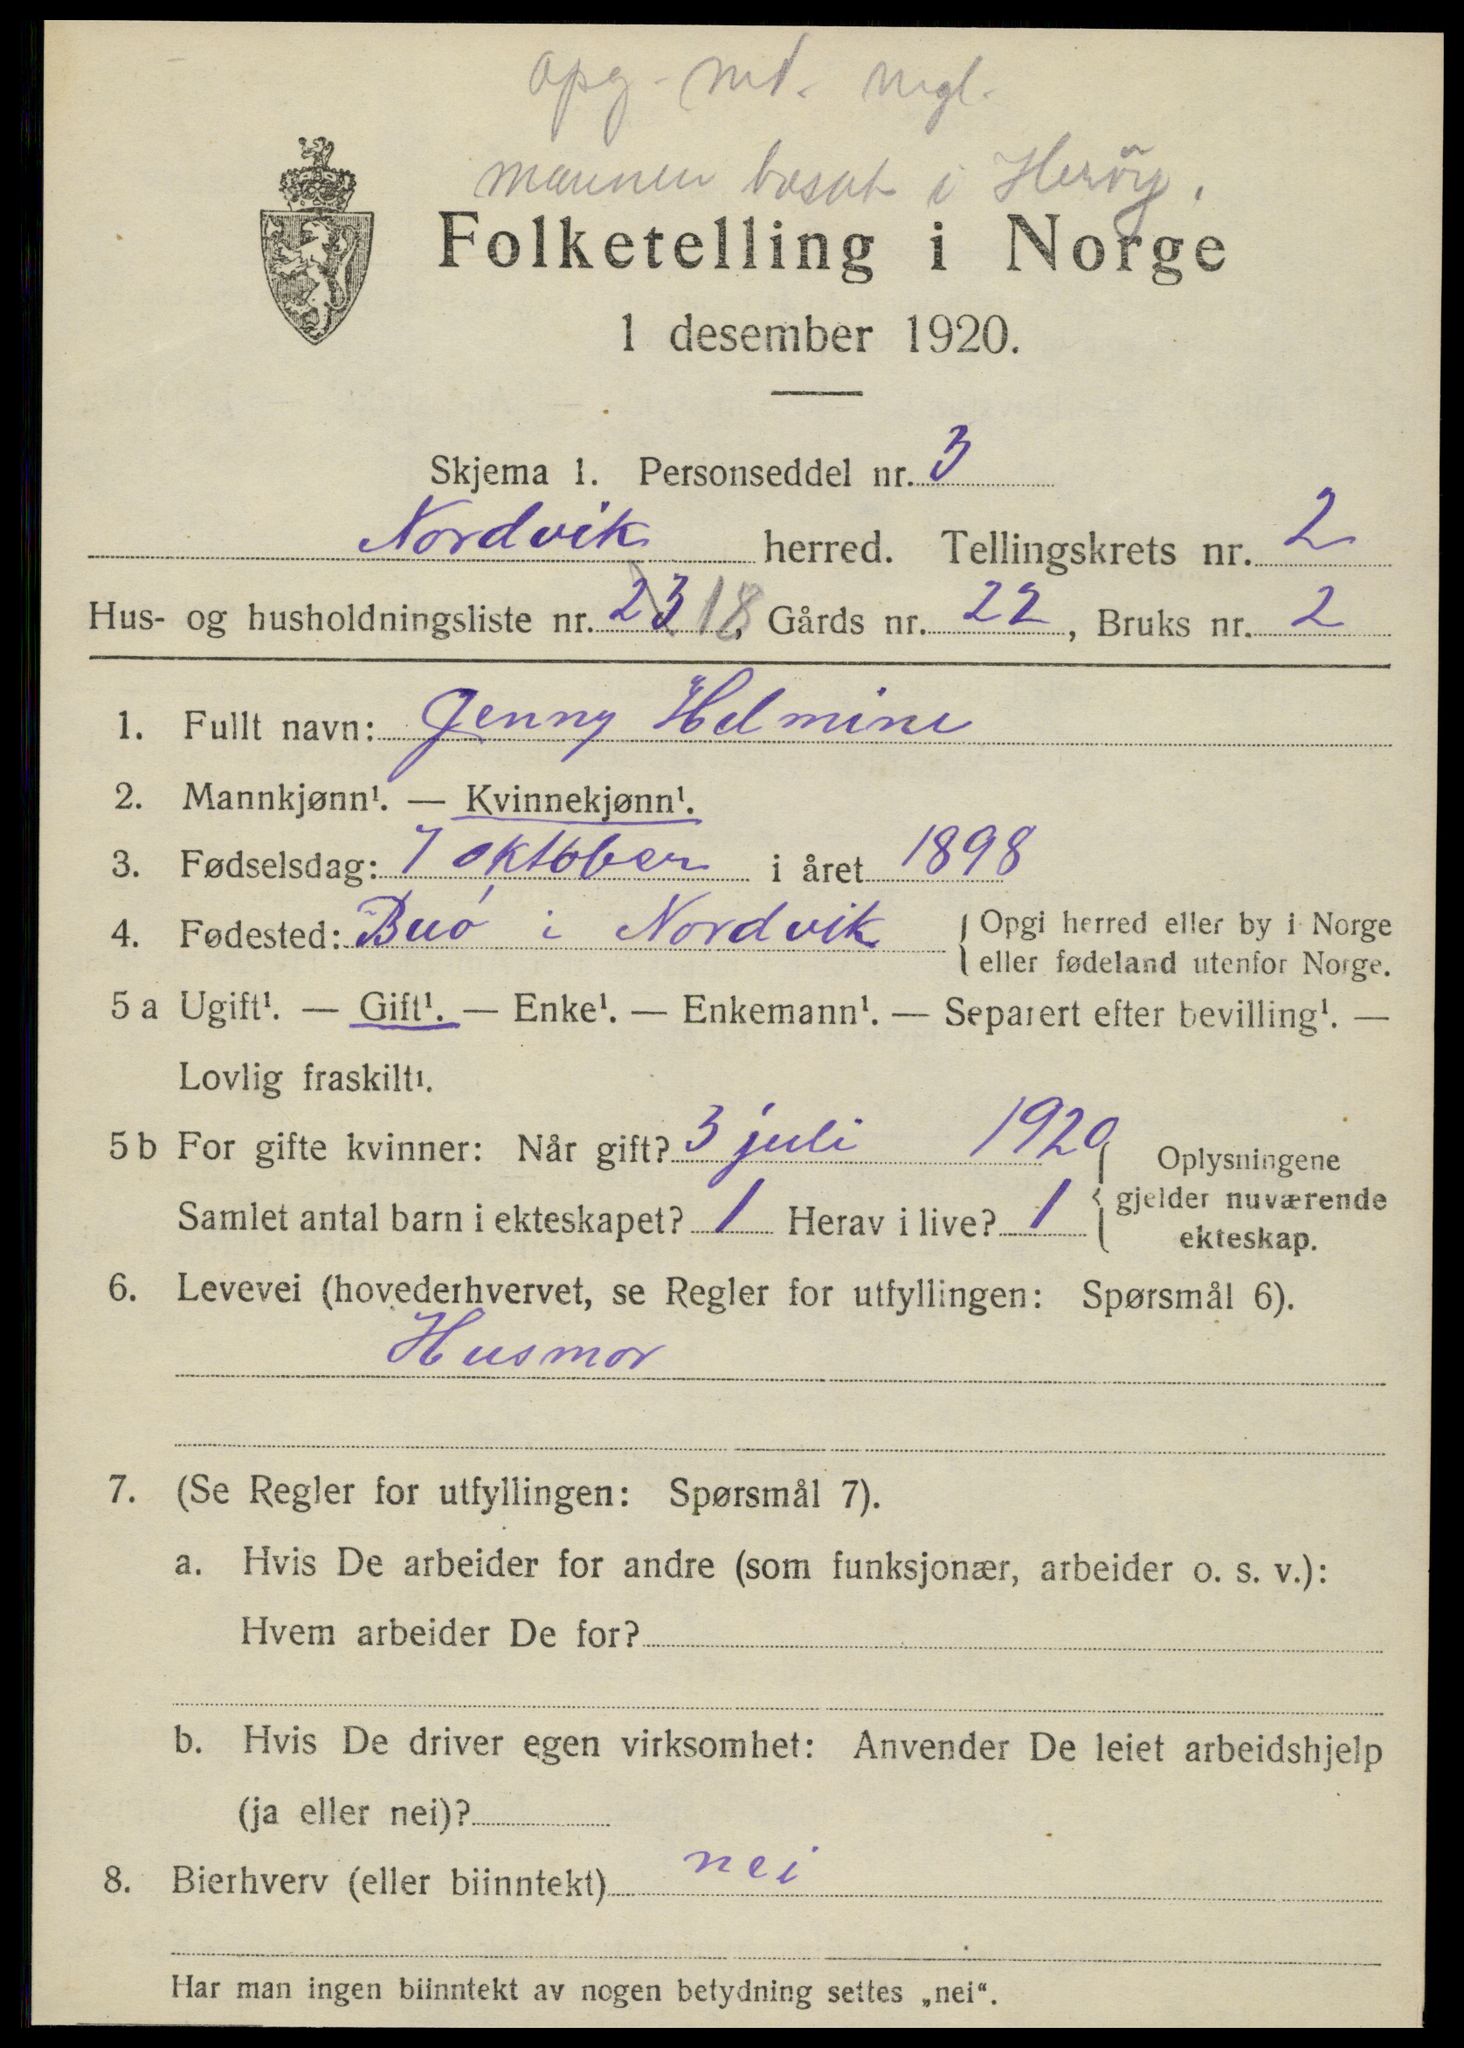 opg. md. mgl.
mannen bosat i Herøy.
Folketelling i Norge
1 desember 1920.
Skjema 1. Personseddel nr. 3
Nordvik herred. Tellingskrets nr. 2
Hus- og husholdningsliste nr. 23 18, Gårds nr. 22, Bruks nr. 2
1. Fullt navn: Jenny Helmine
2. Mannkjønn¹. — Kvinnekjønn¹.
3. Fødselsdag: 7 oktober i året 1898
4. Fødested: Buø i Nordvik { Opgi herred eller by i Norge
eller fødeland utenfor Norge.
5 a Ugift¹. — Gift¹. — Enke¹. — Enkemann¹. — Separert efter bevilling¹. —
Lovlig fraskilt¹.
5 b For gifte kvinner: Når gift? 3 juli 1920
Samlet antal barn i ekteskapet? 1 Herav i live? 1
{ Oplysningene
gjelder nuværende
ekteskap.
6. Levevei (hovederhvervet, se Regler for utfyllingen: Spørsmål 6).
Husmor
7. (Se Regler for utfyllingen: Spørsmål 7).
a. Hvis De arbeider for andre (som funksjonær, arbeider o. s. v.):
Hvem arbeider De for?
b. Hvis De driver egen virksomhet: Anvender De leiet arbeidshjelp
(ja eller nei)?
8. Bierhverv (eller biinntekt) nei
Har man ingen biinntekt av nogen betydning settes „nei“.